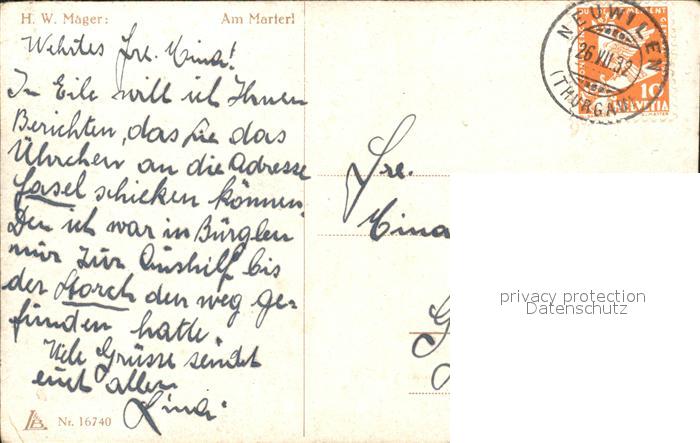 H. W. Mager:
Am Marterl
Wehrtes Fre. Mina!
In Eile will ich Ihnen
Berichten, das sie das
Ührchen an die Adresse
Fasel schicken können.
Den ich war in Bürglen
nur zur Aushilf bis
der Storch den weg ge-
funden hatte.
Viele Grüsse sendet
euch allen
Lina.
Nr. 16740
Fre.
Mina
NEUWILEN
26.VII.32
(THURGAU)
10
HELVETIA
privacy protection
Datenschutz